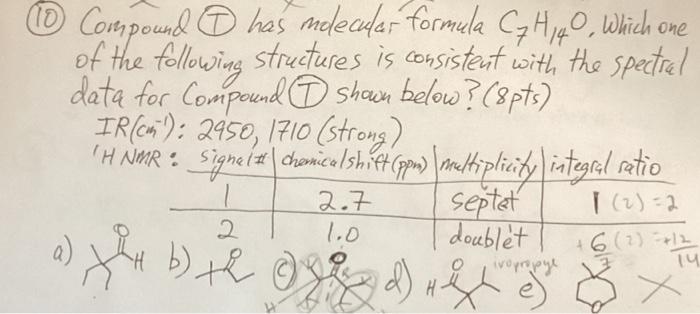 ⑩ Compound Ⓣ has molecular formula C₇H₁₄O. Which one
of the following structures is consistent with the spectral
data for Compound Ⓣ shown below? (8pts)
IR(cm⁻¹): 2950, 1710 (strong)
¹H NMR: signal# chemical shift (ppm) multiplicity integral ratio
1 2.7 septet 1 (2) = 2
2 1.0 doublet 6 (2) = +12
7 14
isopropye
a) O H b) O c) O H d) O H e) O O